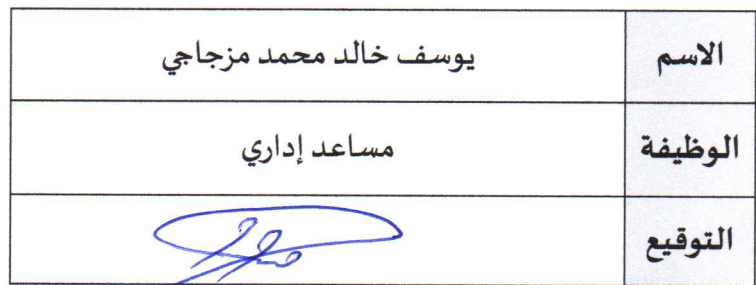 الاسم يوسف خالد محمد مزجاجي
الوظيفة مساعد إداري
التوقيع